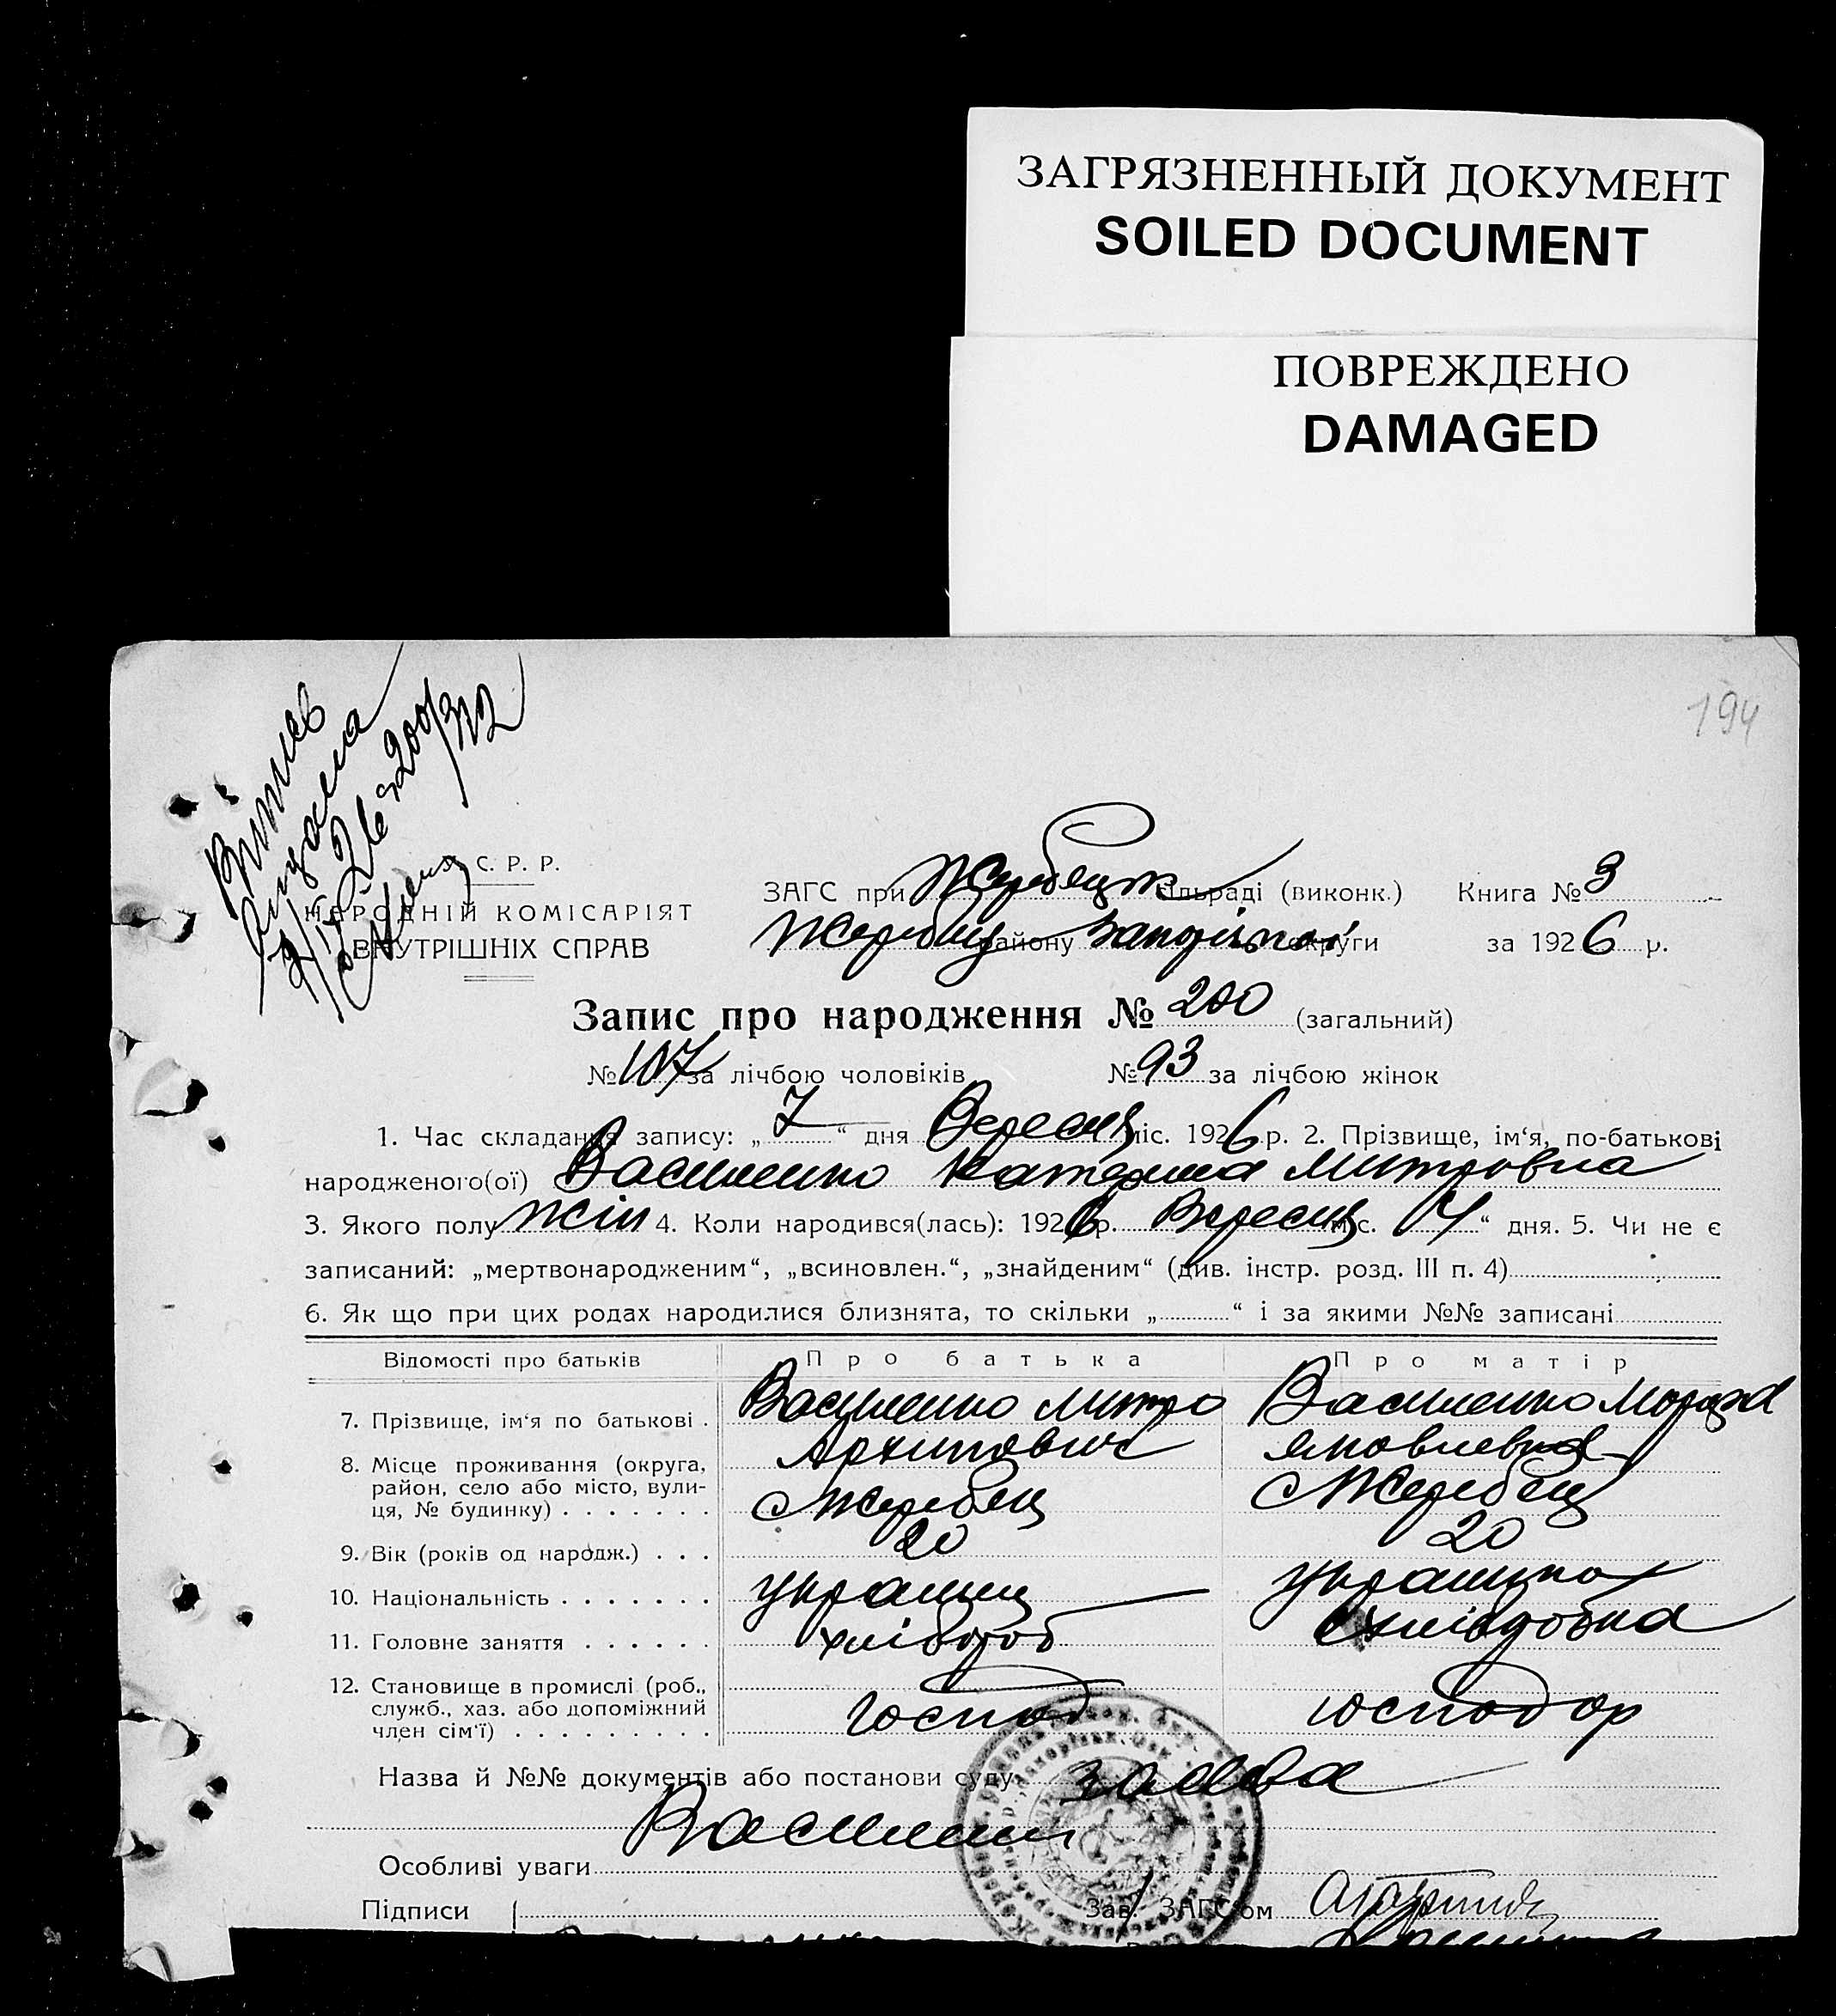 ЗАГРЯЗНЕННЫЙ ДОКУМЕНТ
SOILED DOCUMENT
ПОВРЕЖДЕНО
DAMAGED
194
С. Р. Р.
НАРОДНІЙ КОМІСАРІЯТ
ВНУТРІШНІХ СПРАВ
ЗАГС при Жеребецьк сільраді (виконк.) Книга № 3
Жеребец району Запоріжької округи за 1926 р.
Запис про народження № 200 (загальний)
№ 107 за лічбою чоловіків № 93 за лічбою жінок
1. Час складання запису: „ 7 “ дня Вересця міс. 1926 р. 2. Прізвище, ім‘я, по-батькові
народженого(ої) Василенко Катерина Митровна
3. Якого полу жін 4. Коли народився(лась): 1926 р. Вересця міс. 4 “ дня. 5. Чи не є
записаний: „мертвонародженим“, „всиновлен.“, „знайденим“ (див. інстр. розд. III п. 4)
6. Як що при цих родах народилися близнята, то скільки „ “ і за якими №№ записані
Відомості про батьків Про батька Про матір
7. Прізвище, ім‘я по батькові . Василенко Митро Архипович Василенко Яковлевна
8. Місце проживання (округа,
район, село або місто, вули-
ця, № будинку) . . . . . . . с Жеребец с Жеребец
9. Вік (років од народж.) . . . 20 20
10. Національність . . . . . . . українц українка
11. Головне заняття . . . . . . хлібороб
12. Становище в промислі (роб.,
служб., хаз. або допоміжний
член сім‘ї) . . . . . . . . . господ господор
Назва й №№ документів або постанови суду заява
Василенко
Особливі уваги
Підписи Зав. ЗАГС‘ом